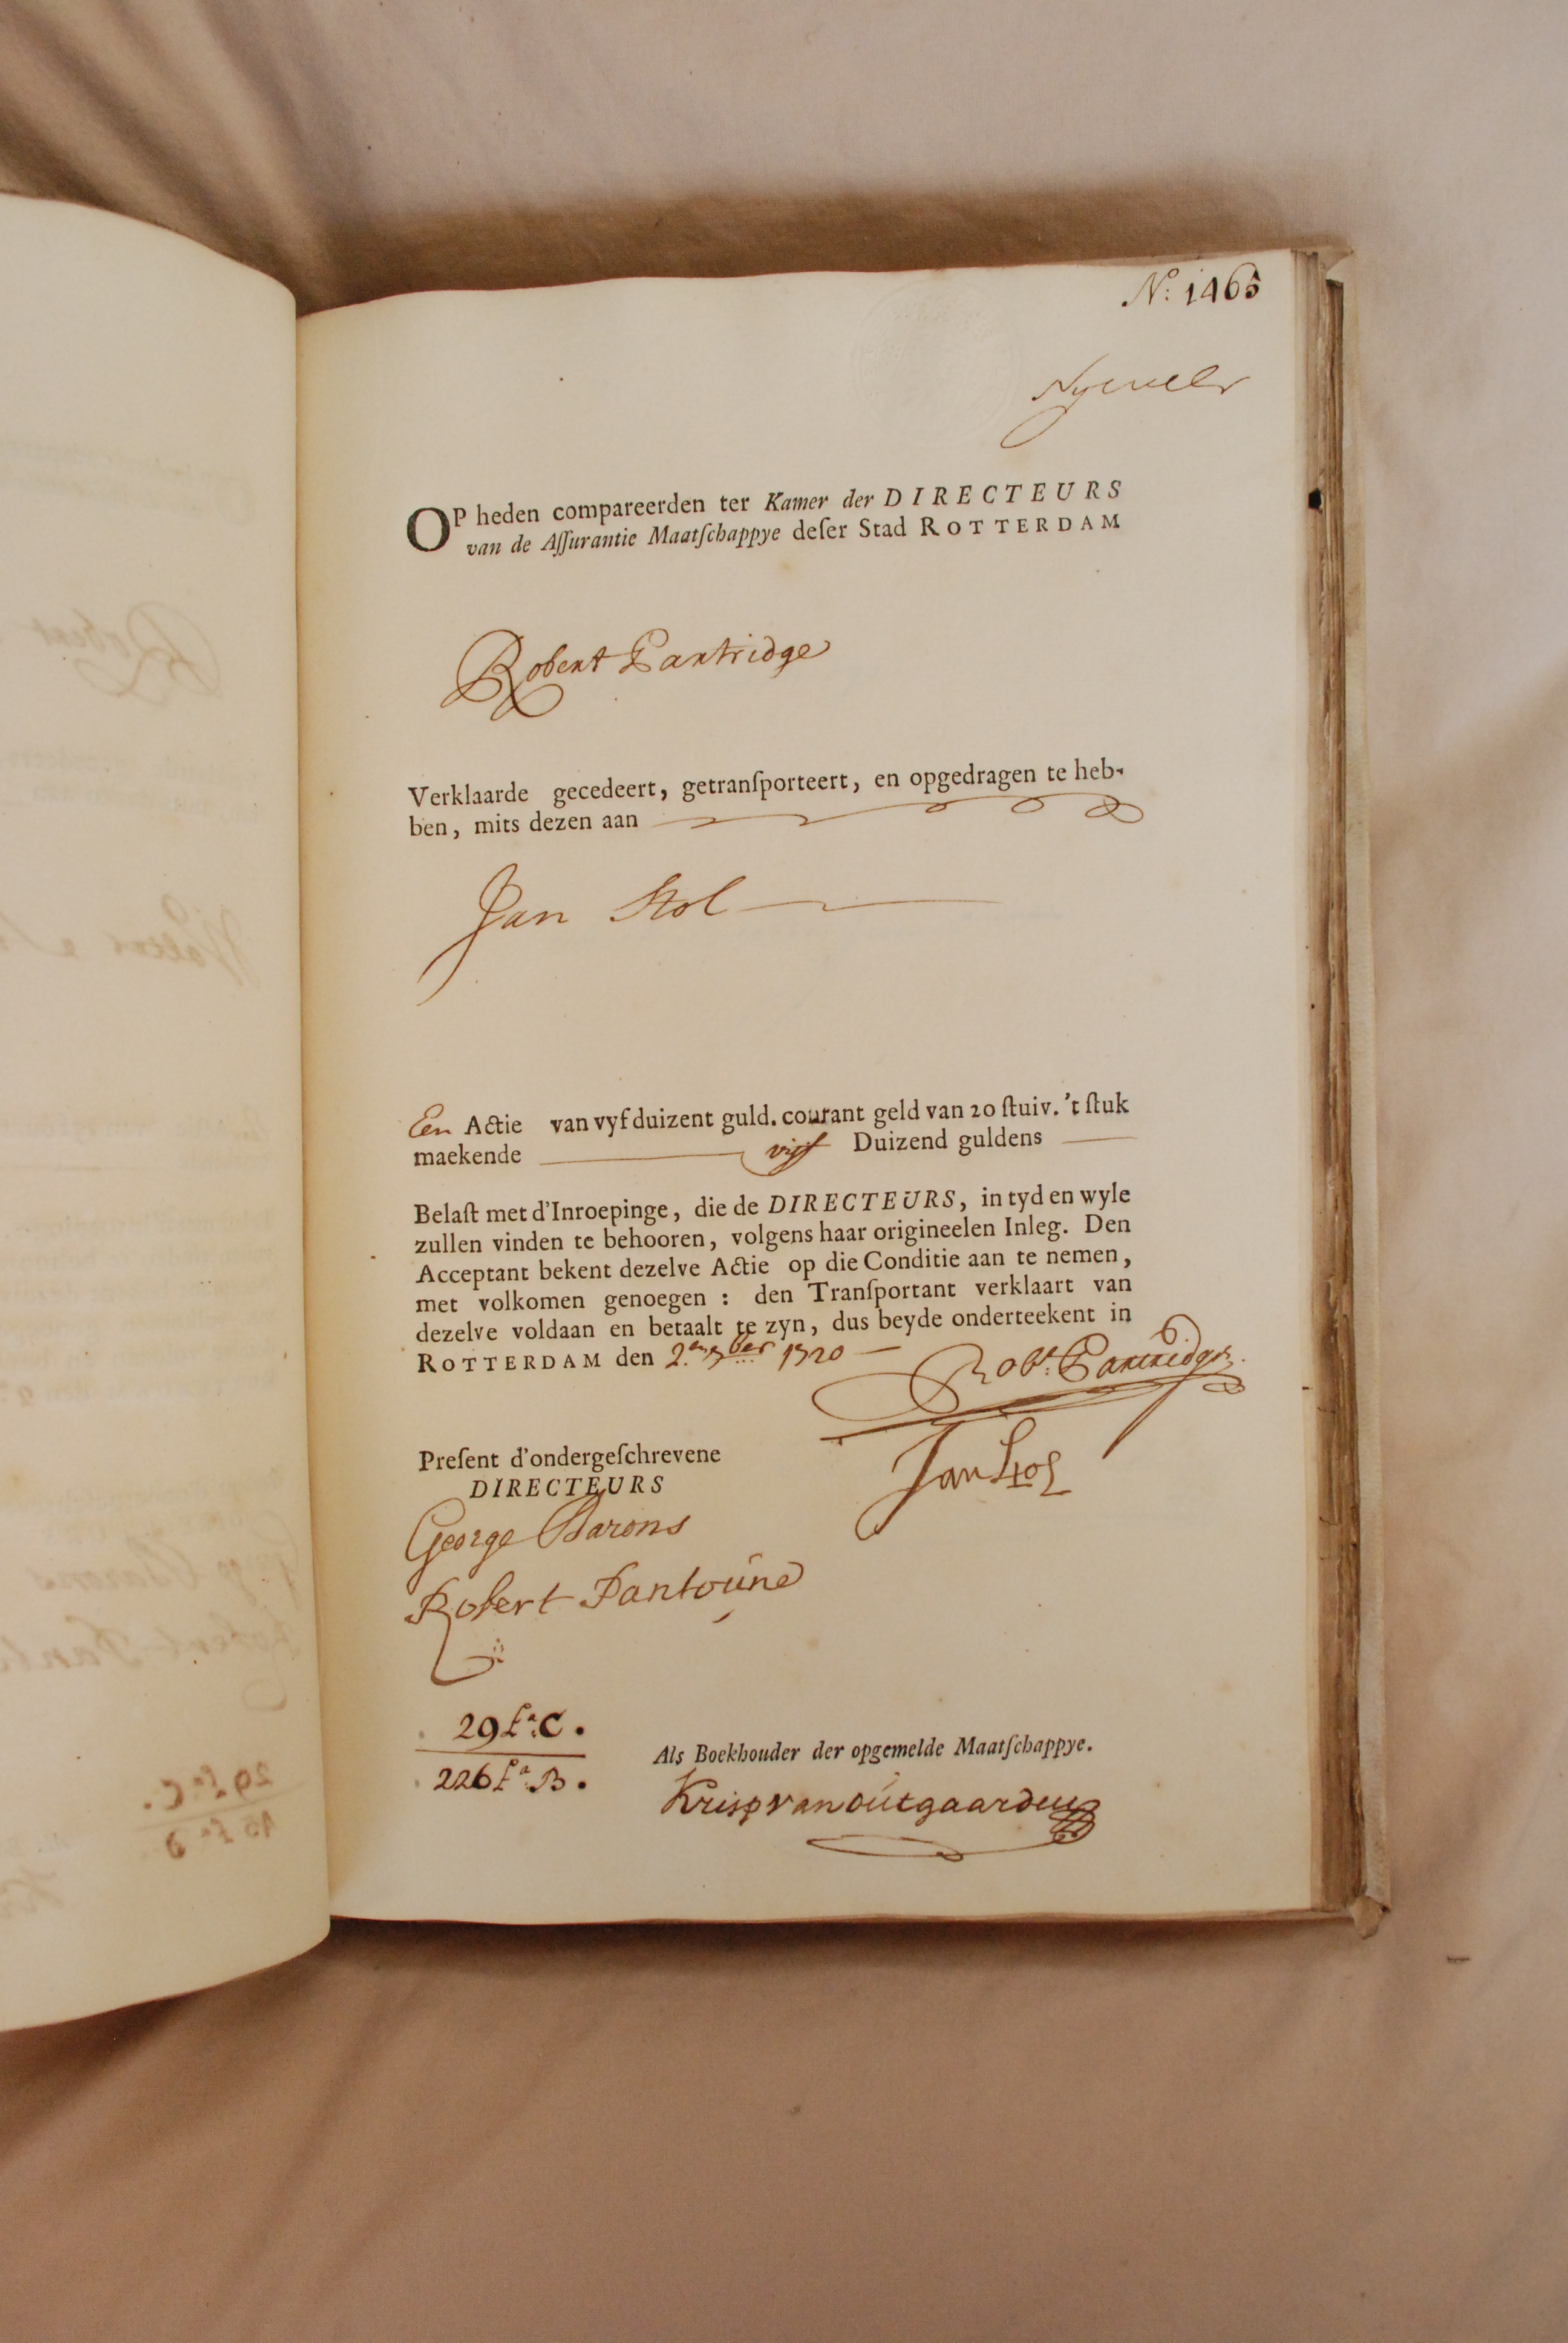 No: 1465
OP heden compareerden ter Kamer der DIRECTEURS
van de Aſſurantie Maatſchappye deſer Stad ROTTERDAM
Robert Partridge
Verklaarde gecedeert, getranſporteert, en opgedragen te heb-
ben, mits dezen aan
Jan Stol
Een Actie van vyf duizent guld. courant geld van 20 ſtuiv. 't ſtuk
maekende vijf Duizend guldens
Belaſt met d'Inroepinge, die de DIRECTEURS, in tyd en wyle
zullen vinden te behooren, volgens haar origineelen Inleg. Den
Acceptant bekent dezelve Actie op die Conditie aan te nemen,
met volkomen genoegen : den Tranſportant verklaart van
dezelve voldaan en betaalt te zyn, dus beyde onderteekent in
ROTTERDAM den 2.en 7ber 1720
Robt: Partridge
Jan Stol
Preſent d'ondergeſchrevene
DIRECTEURS
George Barons
Robert Fantoüne
29 La: C.
226 La: B.
Als Boekhouder der opgemelde Maatſchappye.
Krisp van Oütgaarden